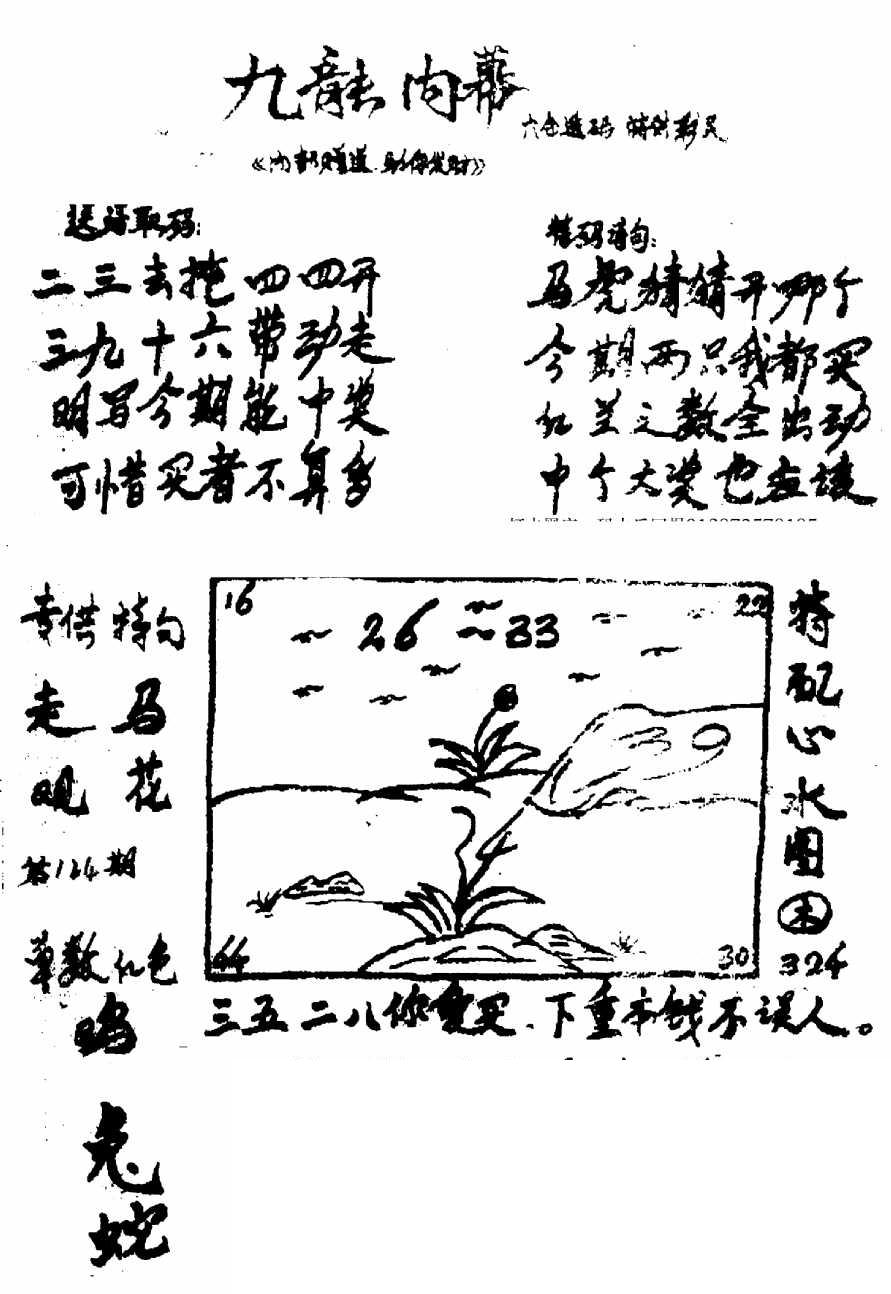 九龍内幕
六合透码 特供彩民
《内部赠送.助你发财》
送诗取码:
二三去掩四四开
三九十六带动走
明写今期能中奖
可惜买者不算多
特码诗句:
马虎猜猜开哪个
今期两只我都买
红兰之数全出动
中个大奖也应该
专供特句
走马
观花
第124期
单数红色
鸡
兔
蛇
16
22
26~33
39
44
30
特配心水图
未
324
三五二八你重买.下重本钱不误人。